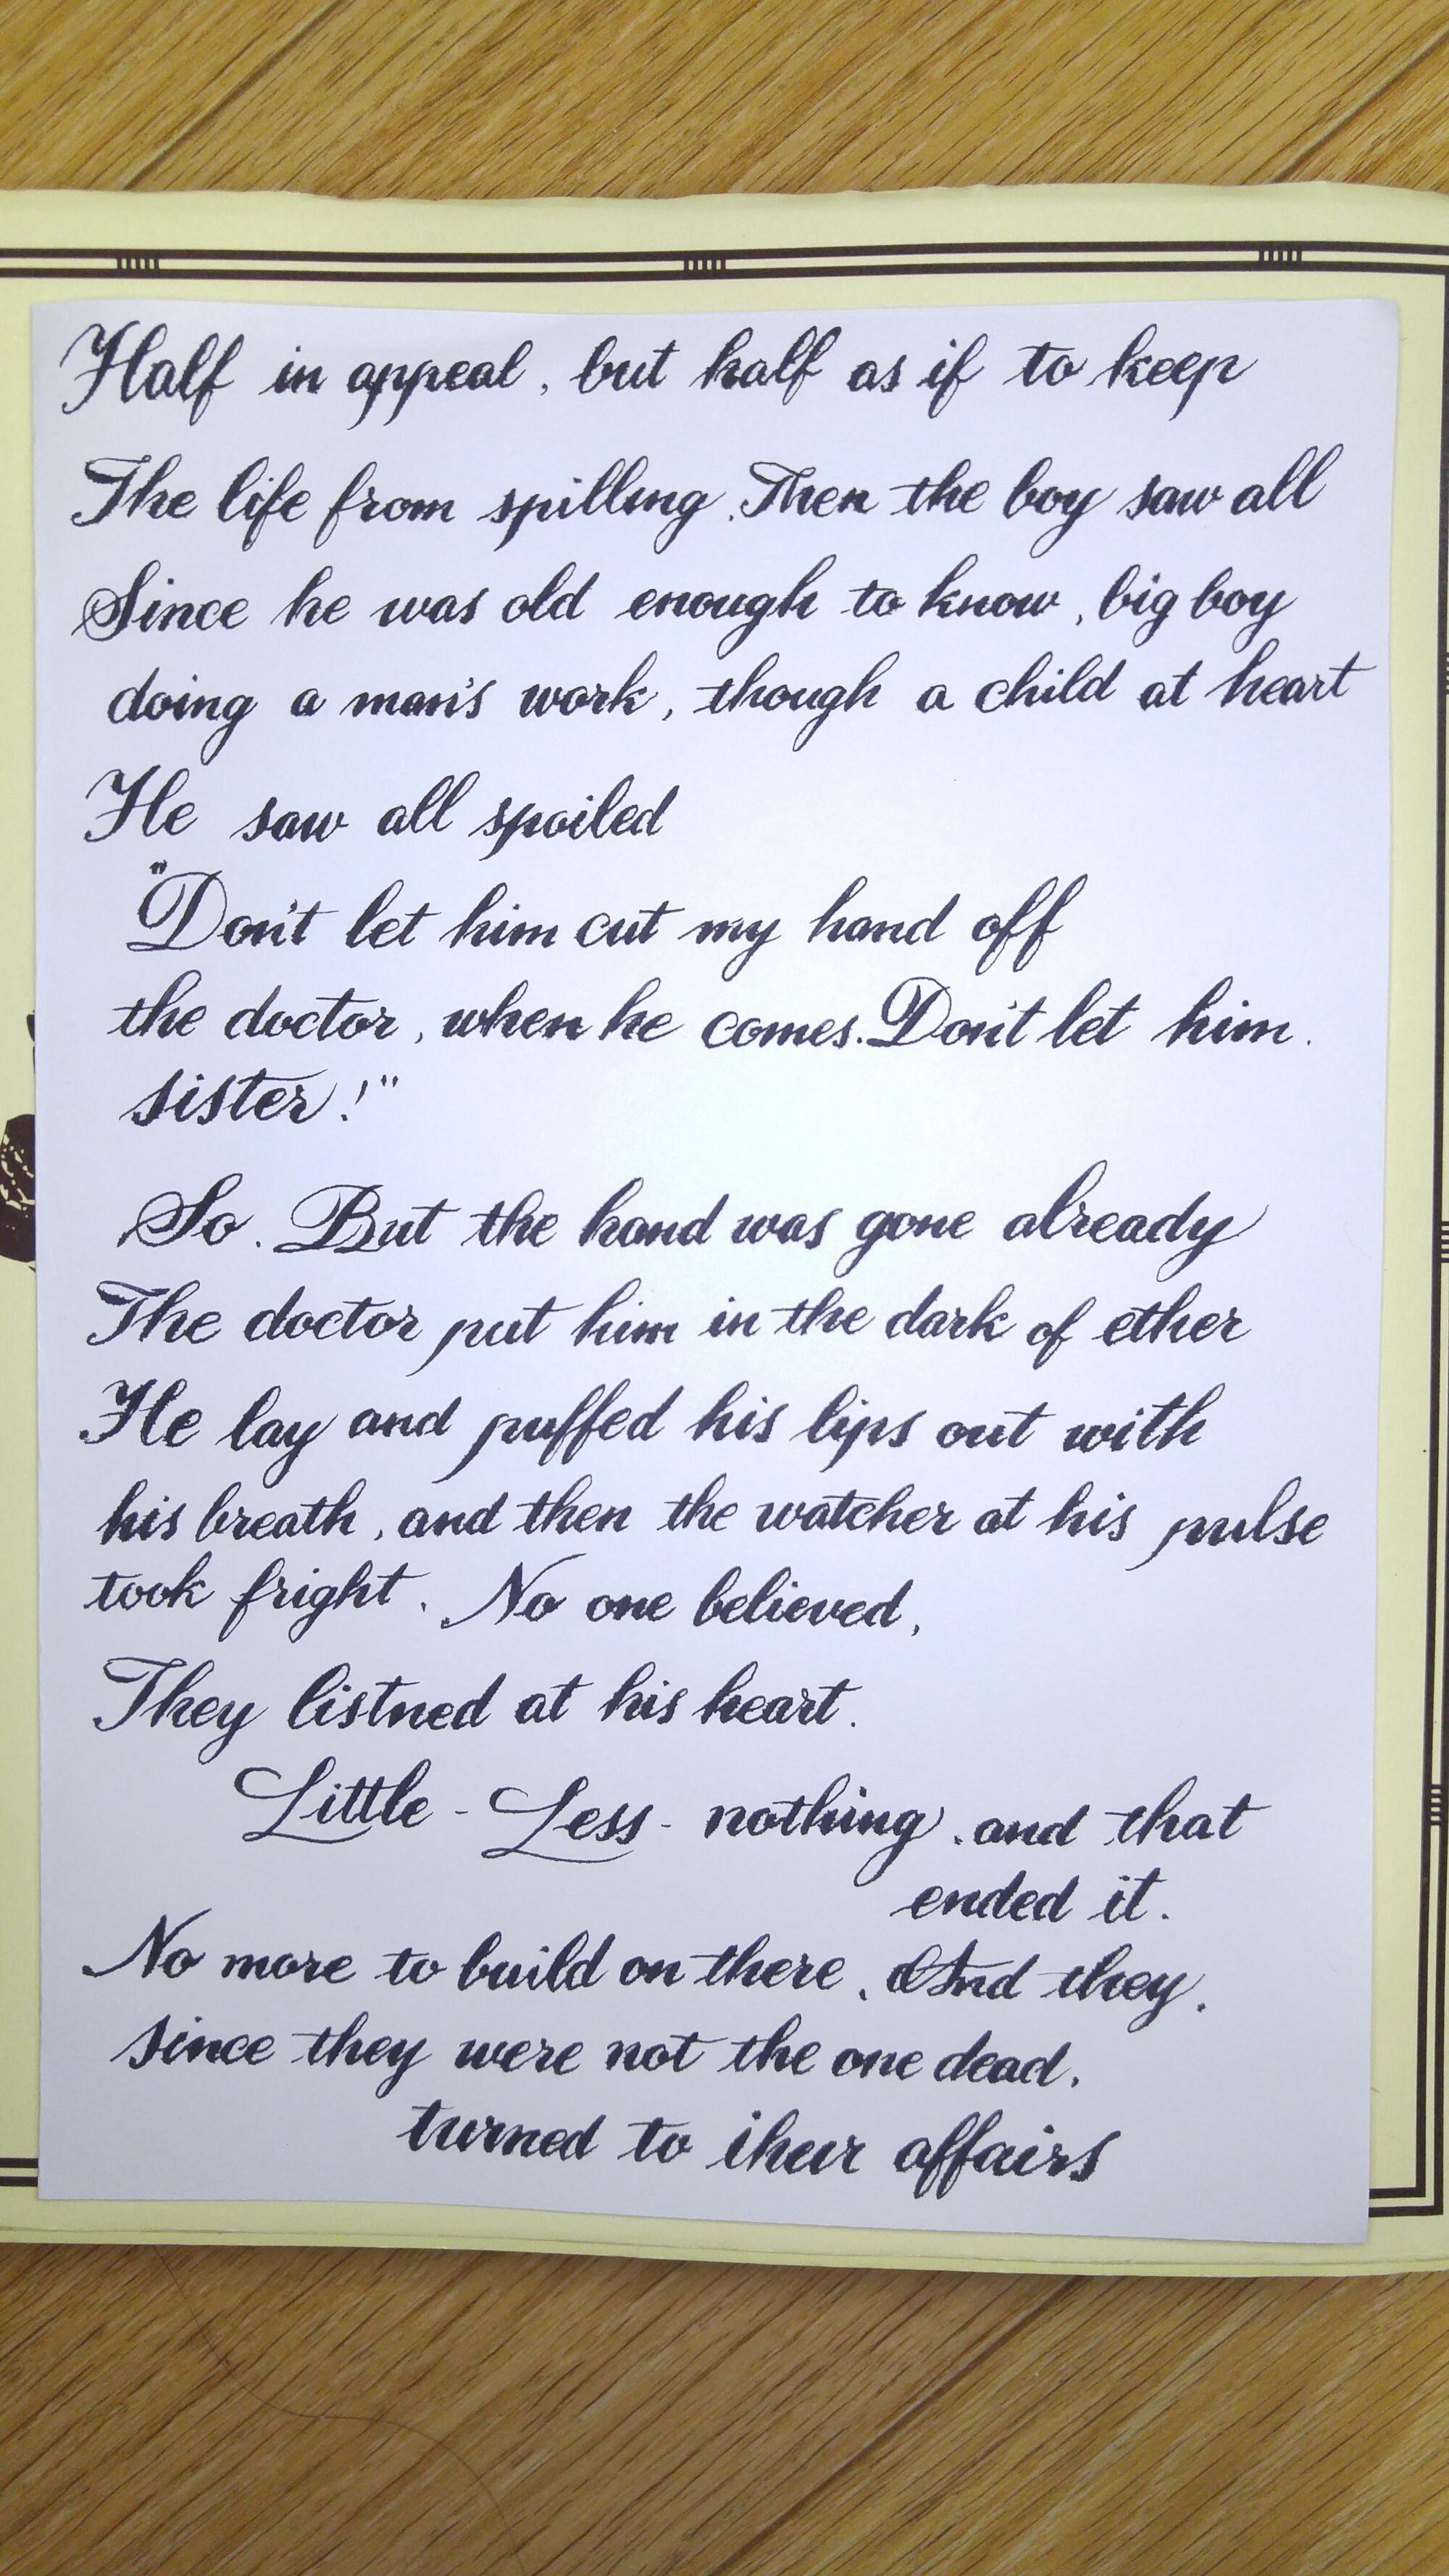 Half in appeal, but half as if to keep
The life from spilling. Then the boy saw all
Since he was old enough to know, big boy
doing a man's work, though a child at heart
He saw all spoiled
"Don't let him cut my hand off
the doctor, when he comes. Don't let him.
sister!"
So. But the hand was gone already
The doctor put him in the dark of ether
He lay and puffed his lips out with
his breath, and then the watcher at his pulse
took fright. No one believed,
They listned at his heart.
Little - Less - nothing. and that
ended it.
No more to build on there. And they.
since they were not the one dead.
turned to their affairs